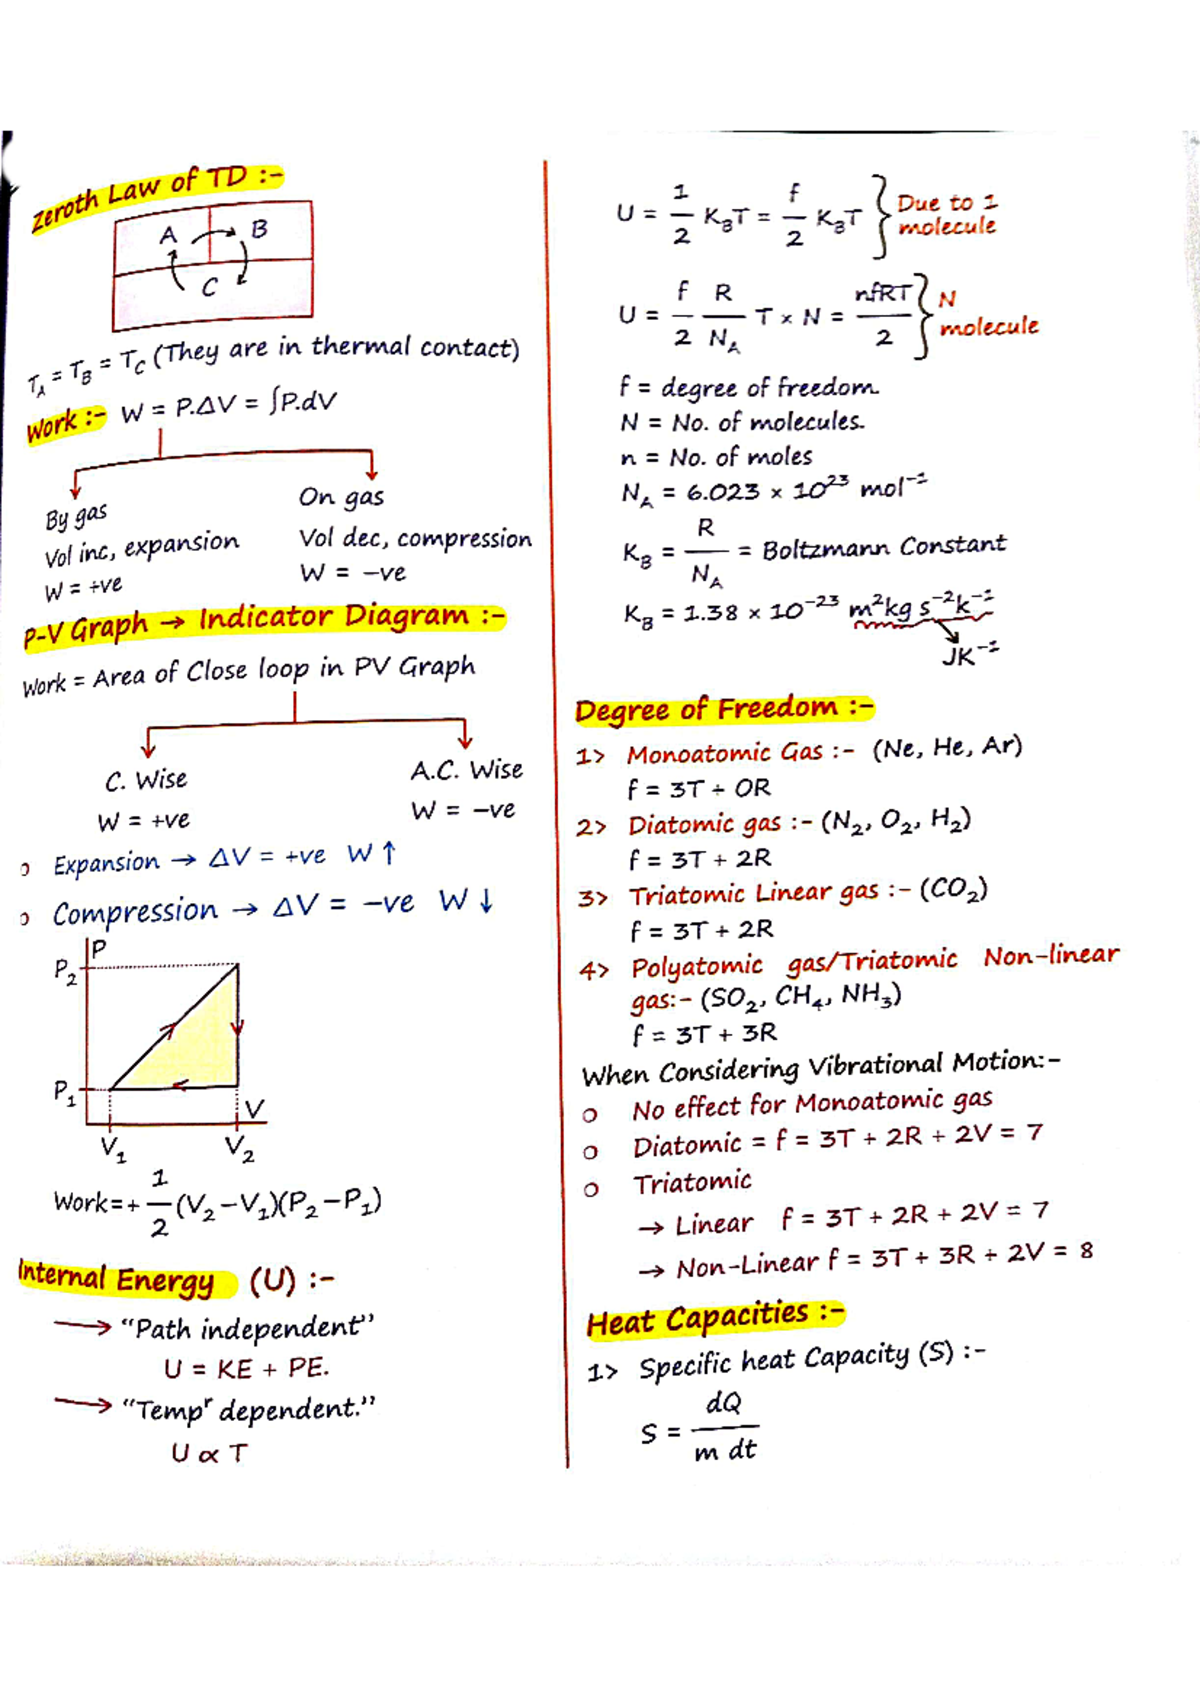 Zeroth Law of TD :-
A B
C
T_A = T_B = T_C (They are in thermal contact)
Work :- W = P.ΔV = ∫P.dV
By gas
Vol inc, expansion
W = +ve
On gas
Vol dec, compression
W = –ve
P-V Graph → Indicator Diagram :-
Work = Area of Close loop in PV Graph
C. Wise
W = +ve
A.C. Wise
W = –ve
o Expansion → ΔV = +ve W ↑
o Compression → ΔV = –ve W ↓
P
P₂
P₁
V
V₁ V₂
Work=+ 1/2 (V₂–V₁)(P₂–P₁)
Internal Energy (U) :-
→ “Path independent”
U = KE + PE.
→ “Tempʳ dependent.”
U ∝ T
U = 1/2 K_BT = f/2 K_BT } Due to 1 molecule
U = f/2 R/N_A T × N = nfRT/2 } N molecule
f = degree of freedom.
N = No. of molecules.
n = No. of moles
N_A = 6.023 × 10²³ mol⁻¹
K_B = R/N_A = Boltzmann Constant
K_B = 1.38 × 10⁻²³ m²kg s⁻²k⁻¹
JK⁻¹
Degree of Freedom :-
1> Monoatomic Gas :- (Ne, He, Ar)
f = 3T + OR
2> Diatomic gas :- (N₂, O₂, H₂)
f = 3T + 2R
3> Triatomic Linear gas :- (CO₂)
f = 3T + 2R
4> Polyatomic gas/Triatomic Non-linear
gas:- (SO₂, CH₄, NH₃)
f = 3T + 3R
When Considering Vibrational Motion:-
o No effect for Monoatomic gas
o Diatomic = f = 3T + 2R + 2V = 7
o Triatomic
→ Linear f = 3T + 2R + 2V = 7
→ Non-Linear f = 3T + 3R + 2V = 8
Heat Capacities :-
1> Specific heat Capacity (S) :-
S = dQ/m dt